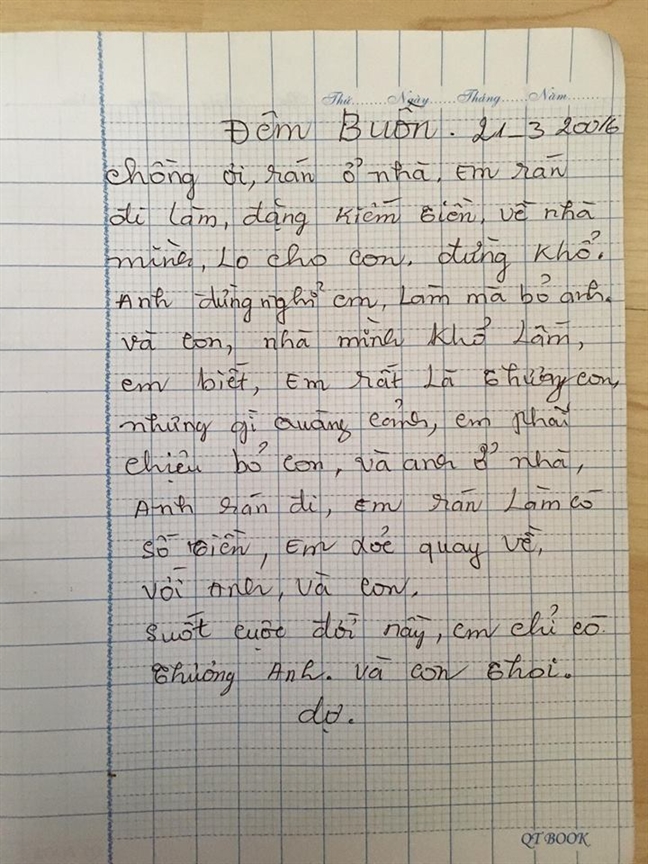 Thứ Ngày Tháng Năm
Đêm Buồn. 21_3 20016
chồng ơi, rán ở nhà, Em rán
đi làm, dặng kiếm tiền, về nhà
mình, Lo cho con, đừng khổ.
Anh dừng nghỉ em, Làm mà bỏ anh.
và con, nhà mình khổ Lắm,
em biết, Em rất Là thương con,
nhưng gì quàng cảnh, em phải
chiệu bỏ con, và anh ở nhà,
Anh rán đi, em rán Làm có
số tiền, Em doẻ quay về,
với Anh, và con.
suốt cuộc dời này, em chỉ có
thương Anh. và con thoi.
dợ.
QT BOOK